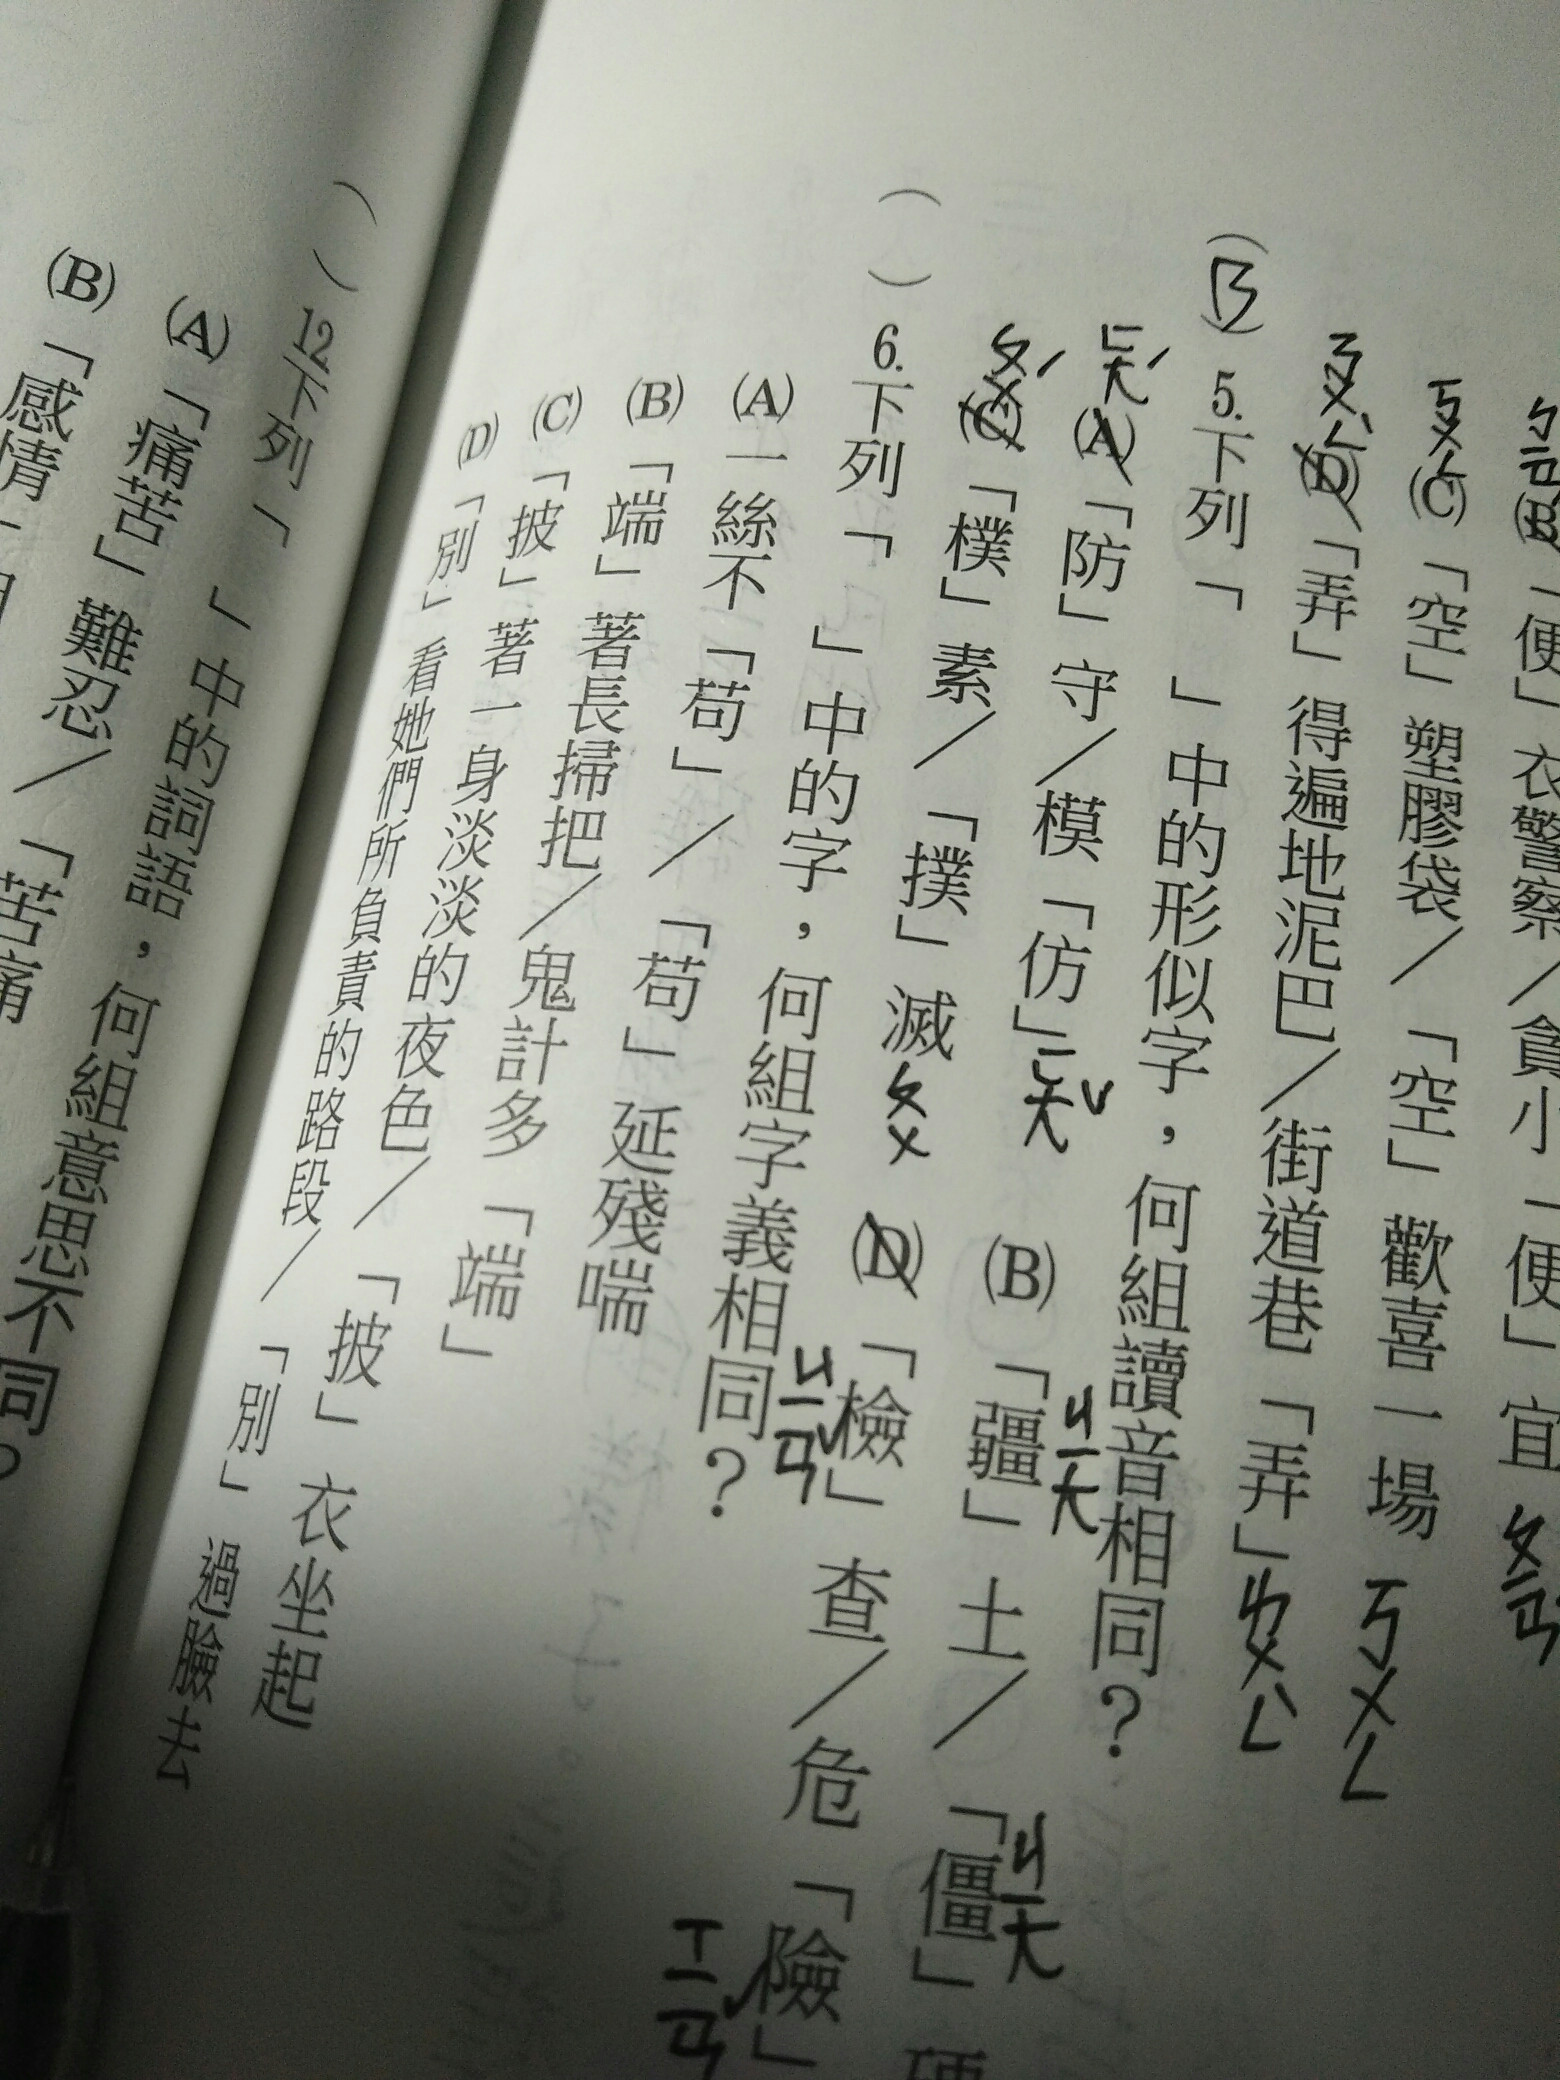 ㄅㄧㄢˋ
(B)「便」衣警察／貪小「便」宜
ㄆㄧㄢˊ
ㄎㄨㄥ
(C)「空」塑膠袋／「空」歡喜一場
ㄎㄨㄥ
ㄋㄨㄥˋ
(D)「弄」得遍地泥巴／街道巷「弄」
ㄌㄨㄥˋ
(B) 5.下列「　」中的形似字，何組讀音相同？
ㄈㄤˊ
(A)「防」守／模「仿」ㄈㄤˇ (B)「疆」土／「僵」硬
ㄐㄧㄤ ㄐㄧㄤ
ㄆㄨˊ
(C)「樸」素／「撲」滅 ㄆㄨ (D)「檢」查／危「險」
ㄐㄧㄢˇ ㄒㄧㄢˇ
(　) 6.下列「　」中的字，何組字義相同？
(A)一絲不「苟」／「苟」延殘喘
(B)「端」著長掃把／鬼計多「端」
(C)「披」著一身淡淡的夜色／「披」衣坐起
(D)「別」看她們所負責的路段／「別」過臉去
(　) 12.下列「　」中的詞語，何組意思不同？
(A)「痛苦」難忍／「苦痛
(B)「感情